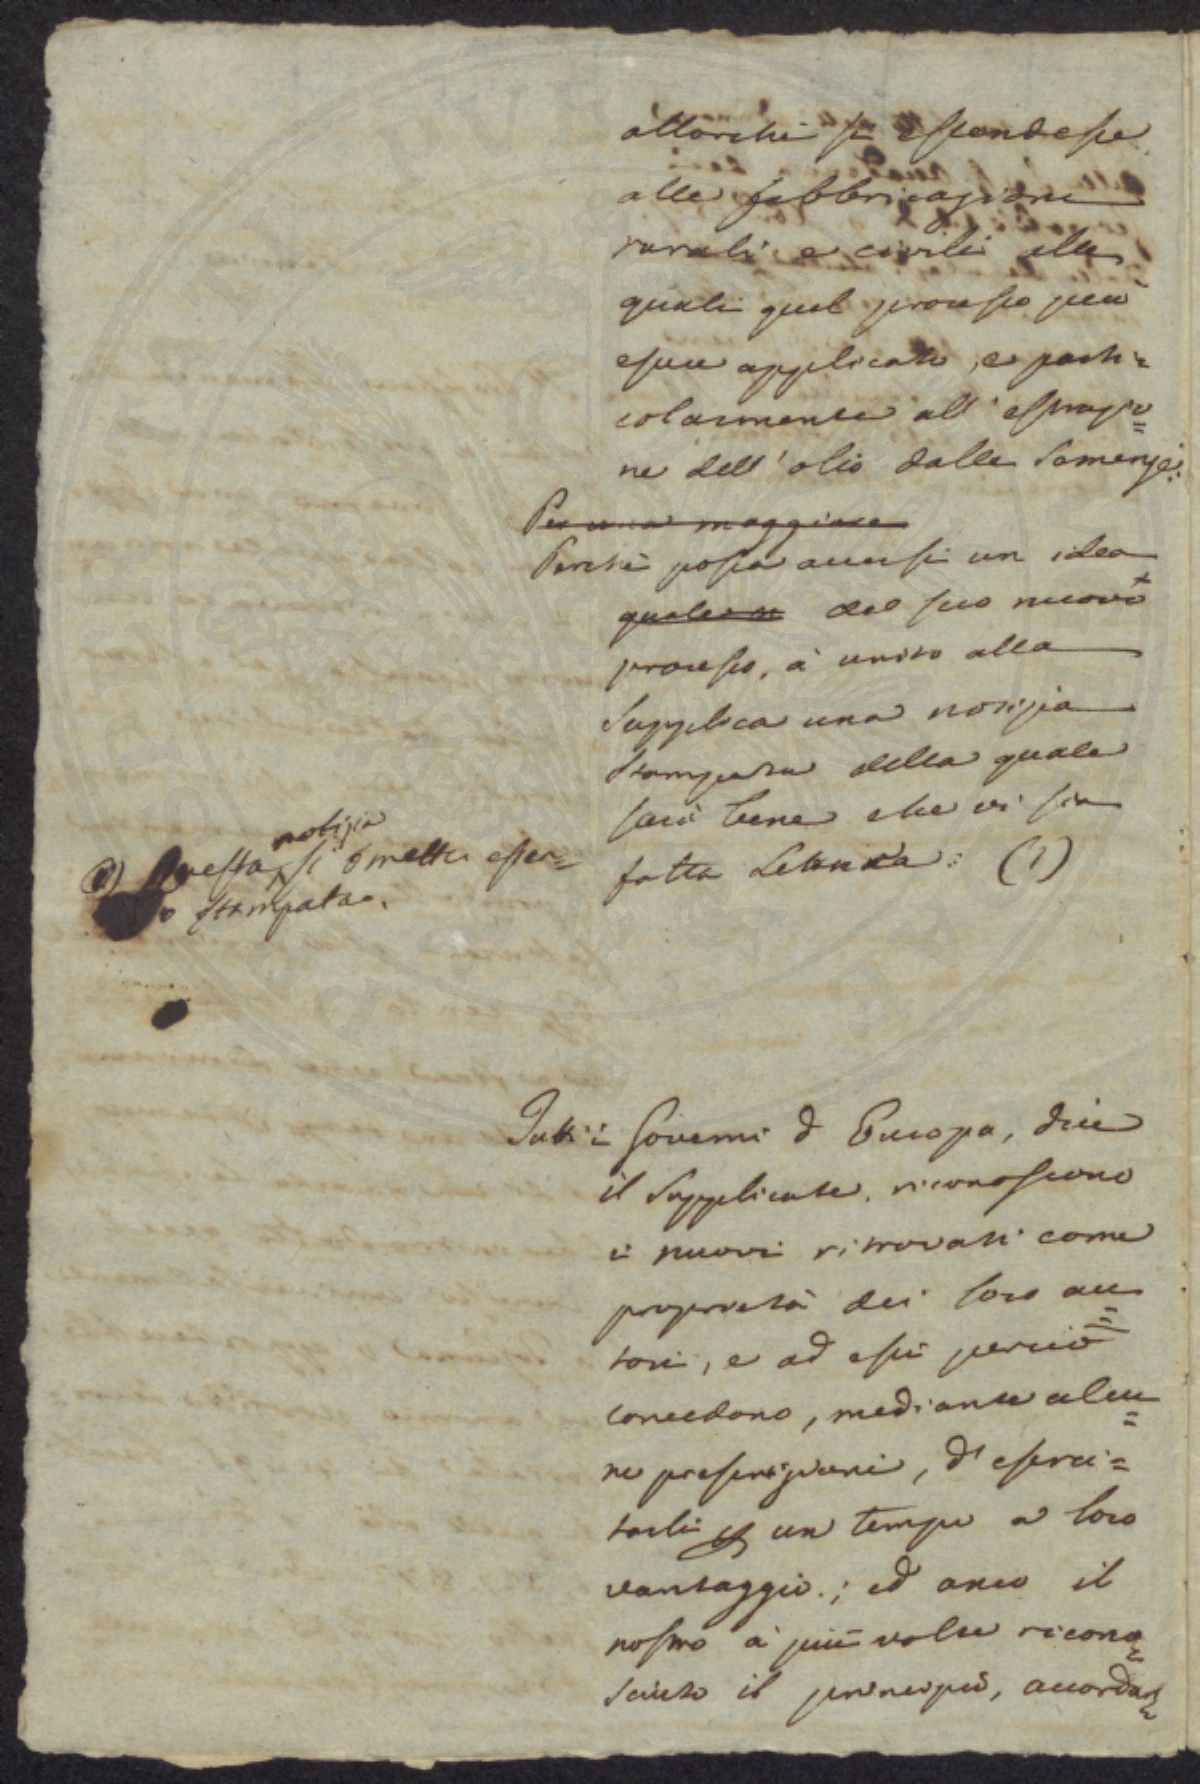 allorchè si estendesse
alle fabbricazioni
rurali e civili alle
quali quel processo può
essere applicato, e parti=
colarmente all'estrazio=
ne dell'olio dalle semenze:
Per una maggiore
Perchè possa aversi un idea
del suo nuovo
processo, à unito alla
supplica una notizia
stampata della quale
sarà bene che vi sia
fatta Lettura: (1)
(1) Questa notizia si omette essen=
do stampata.
Tutti i Governi d'Europa, dice
il Supplicante, riconoscono
i nuovi ritrovati come
proprietà dei loro au=
tori, e ad essi perciò
concedono, mediante alcu=
ne prescrizioni, d'eserci=
tarli p un tempo a loro
vantaggio; ed anco il
nostro à più volte ricono=
sciuto il principio, accordan=